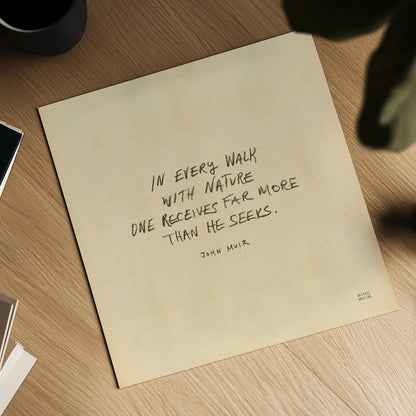 IN EVERY WALK
WITH NATURE
ONE RECEIVES FAR MORE
THAN HE SEEKS.
JOHN MUIR